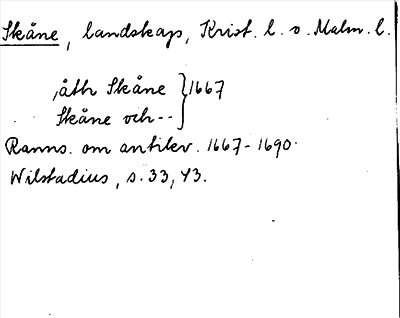 Skåne, landskap, Krist. l. o. Malm. l.
,åth Skåne } 1667
Skåne och -- }
Ranns. om antikv. 1667-1690.
Wilstadius, s. 33, 43.